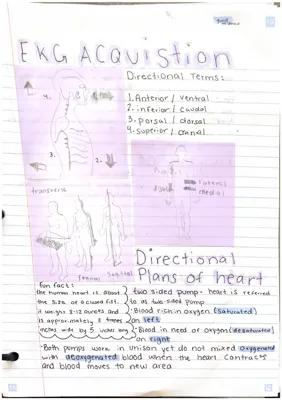 EKG ACQUISTION
Directional Terms:
1. Anterior / ventral
2. inferior / caudal
3. Dorsal / dorsal
4. superior / cranial
4.
3.
2.
lateral
medial
transverse
Frontal
Sagittal
Directional
Plans of heart
Fun fact:
the human heart is about
the size of a closed fist.
it weighs 8-12 ounces and
is approximately 5 inches
inches wide by 5 inches long
two sided pump- heart is referred
to as two-sided pump
Blood rich in oxygen (saturated)
on left
Blood in need of oxygen (desaturated)
on right
Both pumps work in unison yet do not mixed oxygenated
with deoxygenated blood when the heart contracts
and blood moves to new area